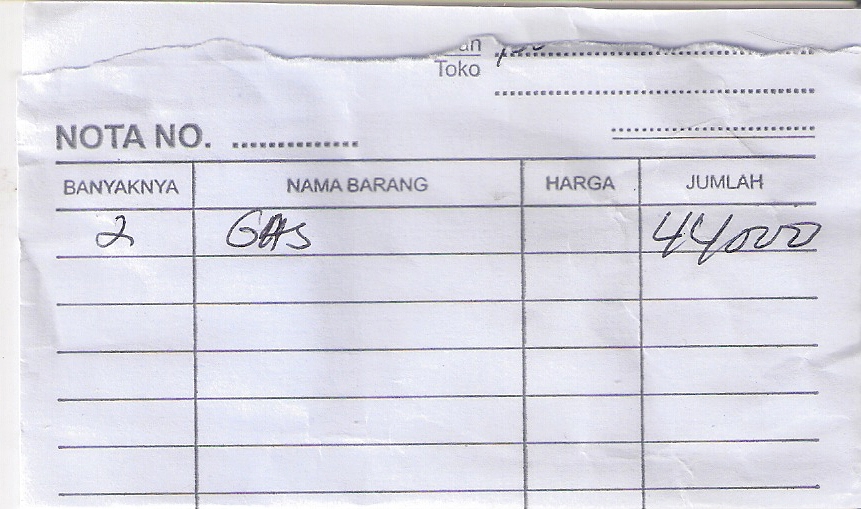 Toko
NOTA NO.
BANYAKNYA NAMA BARANG HARGA JUMLAH
2 GAS 44000